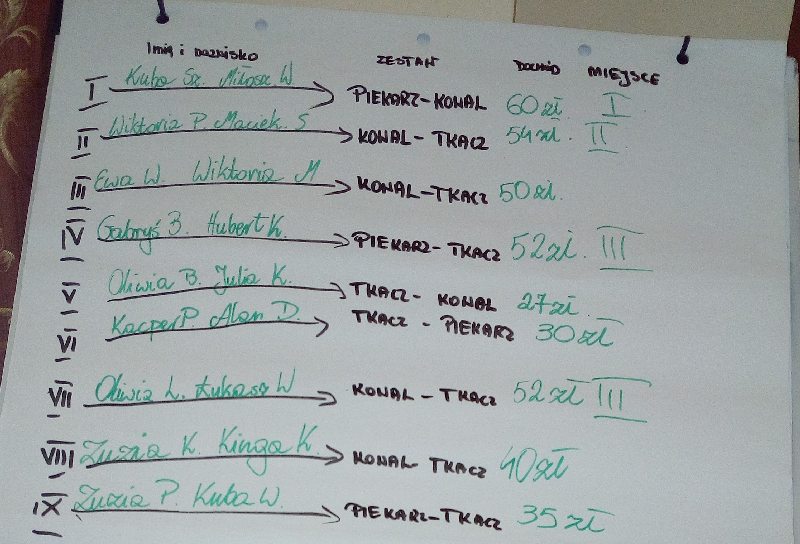 Imię i nazwisko ZESTAW DOCHÓD MIEJSCE
I Kuba Sz. Miłosz W PIEKARZ-KOWAL 60zł I
II Wiktoria P. Maciek. S KOWAL-TKACZ 54zł. II
III Ewa W. Wiktoria M KOWAL-TKACZ 50zł.
IV Gabryś B. Hubert K. PIEKARZ-TKACZ 52zł. III
V Oliwia B. Julia K. TKACZ-KOWAL 27zł.
VI Kacper P Alan D. TKACZ-PIEKARZ 30zł
VII Oliwia L. Łukasz W KOWAL-TKACZ 52zł III
VIII Zuzia K. Kinga K. KOWAL-TKACZ 40zł
IX Zuzia P. Kuba W. PIEKARZ-TKACZ 35zł